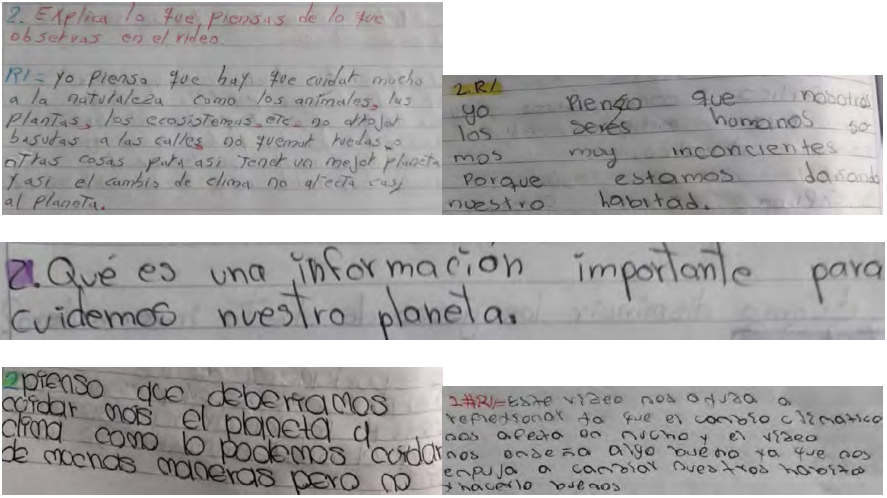 2. Explica lo que piensas de lo que
observas en el video.
R/= yo pienso que hay que cuidar mucho
a la naturaleza como los animales, las
plantas, los ecosistemas, etc. no arrojar
basuras a las calles no quemar ruedas o
otras cosas para así tener un mejor planeta
y así el cambio de clima no afecta casi
al planeta.
2.R/
yo pienso que nosotros
los seres humanos so
mos muy inconcientes
porque estamos dañando
nuestro habitad.
2. Qué es una información importante para
cuidemos nuestro planeta.
2 pienso que deberiamos
cuidar más el planeta y
clima como lo podemos cuidar
de muchas maneras pero no
2#R//= Este video nos ayuda a
reflexionar ya que el cambio climatico
nos afecta un mucho y el video
nos enseña algo bueno ya que nos
empuja a cambiar nuestros habitos
y hacerlo buenos